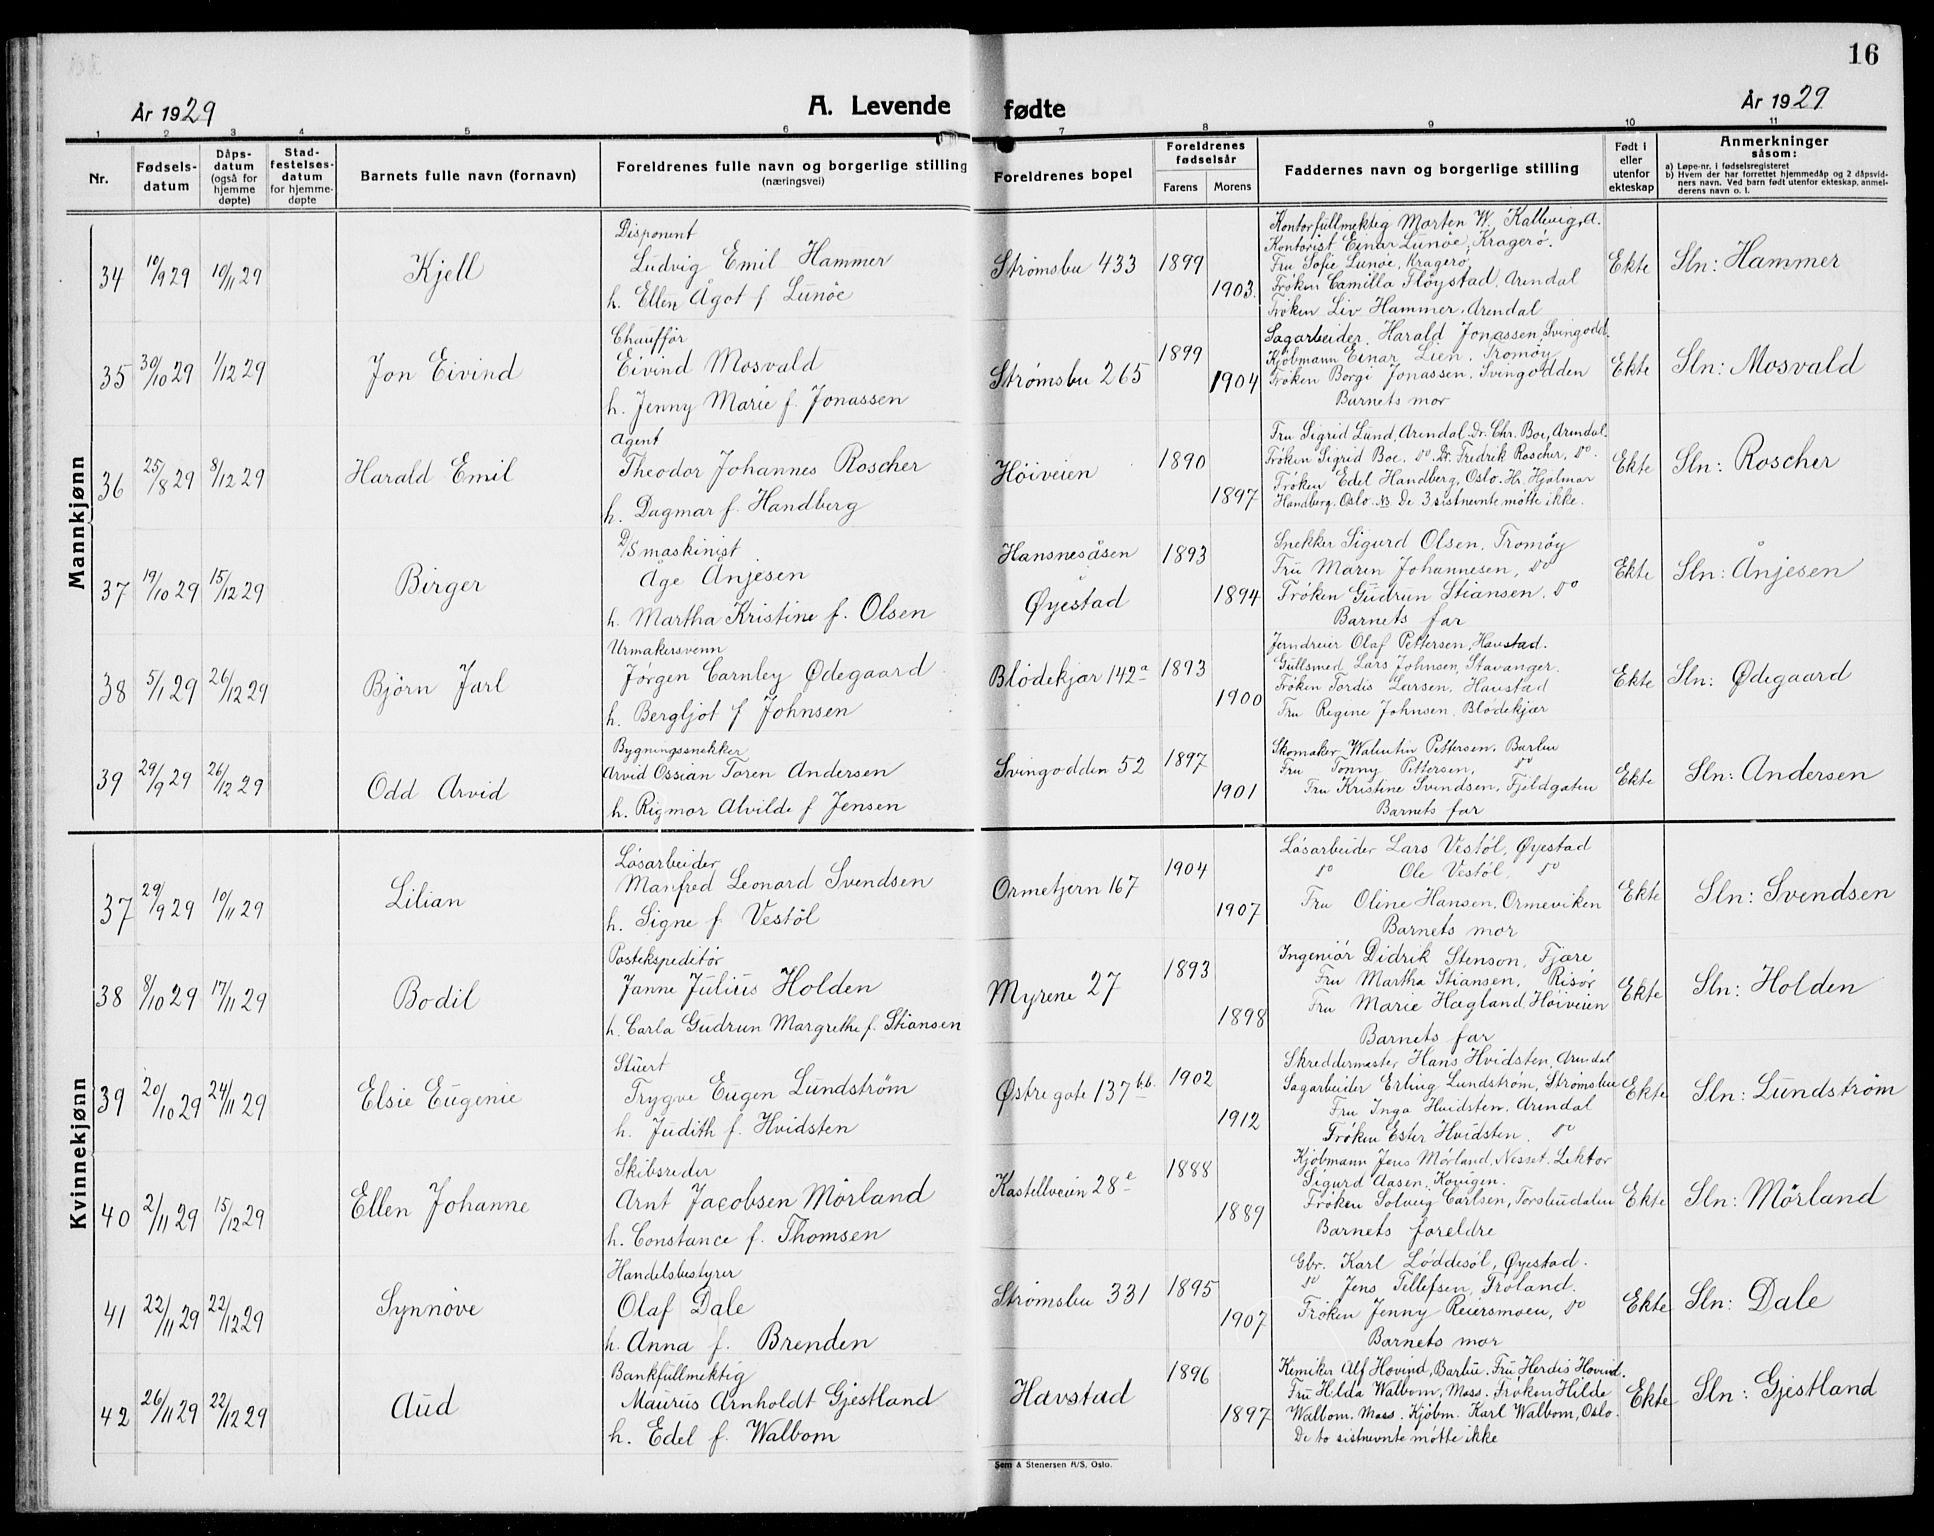 16
År 1929
A. Levende fødte
År 1929
1 2 3 4 5 6 7 8 9 10 11
Nr.
Fødsels-
datum
Dåps-
datum
(også for
hjemme
døpte)
Stad-
festelses-
datum
for hjemme-
døpte
Barnets fulle navn (fornavn)
Foreldrenes fulle navn og borgerlige stilling
(næringsvei)
Foreldrenes bopel
Foreldrenes
fødselsår
Farens Morens
Faddernes navn og borgerlige stilling
Født i
eller
utenfor
ekteskap
Anmerkninger
såsom:
a) Løpe-nr. i fødselsregisteret
b) Hvem der har forrettet hjemmedåp og 2 dåpsvid-
ners navn. Ved barn født utenfor ekteskap, anmel-
derens navn o. l.
Mannkjønn
34 10/9 29 10/11 29 Kjell
Disponent
Ludvig Emil Hammer
h. Ellen Ågot f Lunöe
Strømsbu 433 1899 1903.
Kontorfullmektig Marten W. Kallevig, A.
Kontorist Einar Lunöe, Kragerø.
Fru Sofie Lunöe, Kragerø
Frøken Camilla Fløystad, Arendal
Frøken Liv Hammer, Arendal
Ekte Sln: Hammer
35 30/10 29 1/12 29 Jon Eivind
Chauffør
Eivind Mosvald
h. Jenny Marie f. Jonassen
Strømsbu 265 1899 1904
Sagarbeider Harald Jonassen, Svingodd.
Kjöbmann Einar Lien, Tromøy
Frøken Borgi Jonassen, Svingodden
Barnets mor
Ekte Sln: Mosvald
36 25/8 29 8/12 29 Harald Emil
Agent
Theodor Johannes Roscher
h. Dagmar f. Handberg
Höiveien 1890 1897
Fru Sigrid Lund, Arendal. Dr. Chr. Boe, Arendal.
Frøken Sigrid Boe, do Dr. Fredrik Roscher, do.
Frøken Edel Handberg, Oslo. Hr. Hjalmar
Handberg, Oslo. NB De 3 sistnevnte møtte ikke.
Ekte Sln: Roscher
37 19/10 29 15/12 29 Birger
D/S maskinist
Åge Ånjesen
h. Martha Kristine f. Olsen
Hansnesåsen
Øyestad
1893 1894
Snekker Sigurd Olsen, Tromøy
Fru Maren Johannesen, do
Frøken Gudrun Stiansen, do
Barnets far
Ekte Sln: Ånjesen
38 5/1 29 26/12 29 Bjørn Jarl
Urmakersvenn
Jørgen Carnley Ødegaard
h. Bergljot f Johnsen
Blödekjær 142a 1893 1900
Jerndreier Olaf Pettersen, Havstad.
Gullsmed Lars Johnsen, Stavanger.
Frøken Tordis Larsen, Havstad
Fru Regine Johnsen, Blödekjær
Ekte Sln: Ødegaard
39 29/9 29 26/12 29 Odd Arvid
Bygningssnekker
Arvid Ossian Toren Andersen
h. Rigmor Alvilde f Jensen
Svingodden 52 1897 1901
Skomaker Valentin Pettersen, Barbu
Fru Tonny Pettersen, do
Fru Kristine Svendsen, Fjeldgaten
Barnets far
Ekte Sln: Andersen
Kvinnekjønn
37 29/9 29 10/11 29 Lilian
Løsarbeider
Manfred Leonard Svendsen
h. Signe f Vestöl
Ormetjern 167 1904 1907
Løsarbeider Lars Vestöl, Øyestad
do Ole Vestöl, do
Fru Oline Hansen, Ormeviken
Barnets mor
Ekte Sln: Svendsen
38 8/10 29 17/11 29 Bodil
Postekspeditør
Janne Julius Holden
h. Carla Gudrun Margrethe f. Stiansen
Myrene 27 1893 1898
Ingeniør Didrik Stenson, Fjære
Fru Martha Stiansen, Risør
Fru Marie Hagland, Høiveien
Barnets far
Ekte Sln: Holden
39 20/10 29 24/11 29 Elsie Eugenie
Stuert
Trygve Eugen Lundstrøm
h. Judith f. Hvidsten
Østregate 137 bb. 1902 1912
Skreddermester Hans Hvidsten, Arendal
Sagarbeider Erling Lundstrøm, Strømsbu
Fru Inga Hvidsten, Arendal
Frøken Ester Hvidsten, do
Ekte Sln: Lundstrøm
40 2/11 29 15/12 29 Ellen Johanne
Skibsreder
Arnt Jacobsen Mørland
h. Constance f. Thomsen
Kastellveien 28e 1888 1889
Kjøbmann Jens Mørland, Nesset. Lektor
Sigurd Aasen, Kovigen.
Frøken Solveig Carlsen, Torsbudalen
Barnets foreldre
Ekte Sln: Mørland
41 22/11 29 22/12 29 Synnøve
Handelsbestyrer
Olaf Dale
h. Anna f. Brenden
Strømsbu 331 1895 1907
Gbr. Karl Løddesöl, Øyestad.
do Jens Tellefsen, Froland.
Frøken Jenny Reiersmoen, do
Barnets mor
Ekte Sln: Dale
42 26/11 29 22/12 29 Aud
Bankfullmektig
Maurus Arnholdt Gjestland
h. Edel f. Walbom
Havstad 1896 1897
Kemiker Alf Hovind, Barbu. Fru Herdis Hovind.
Fru Hilda Walbom, Moss. Frøken Hilde
Walbom, Moss. Kjøbm. Karl Walbom, Oslo.
De to sistnevnte møtte ikke
Ekte Sln: Gjestland
Sem & Stenersen A/S, Oslo.